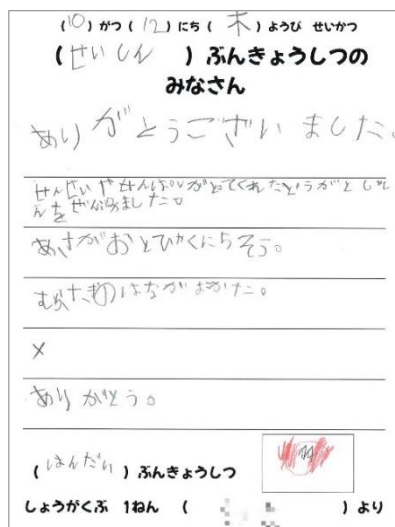 (10)がつ(12)にち(木)ようび せいかつ
(せいしん)ぶんきょうしつの
みなさん
ありがとうございました。
せんせいやせんぱいがとってくれたどうがとしゃし
んをぜんぶみました。
あさがおとひゃくにちそう。
むらさきのはながさいた。
×
ありがとう。
(ほんだい)ぶんきょうしつ
しょうがくぶ 1ねん ( )より